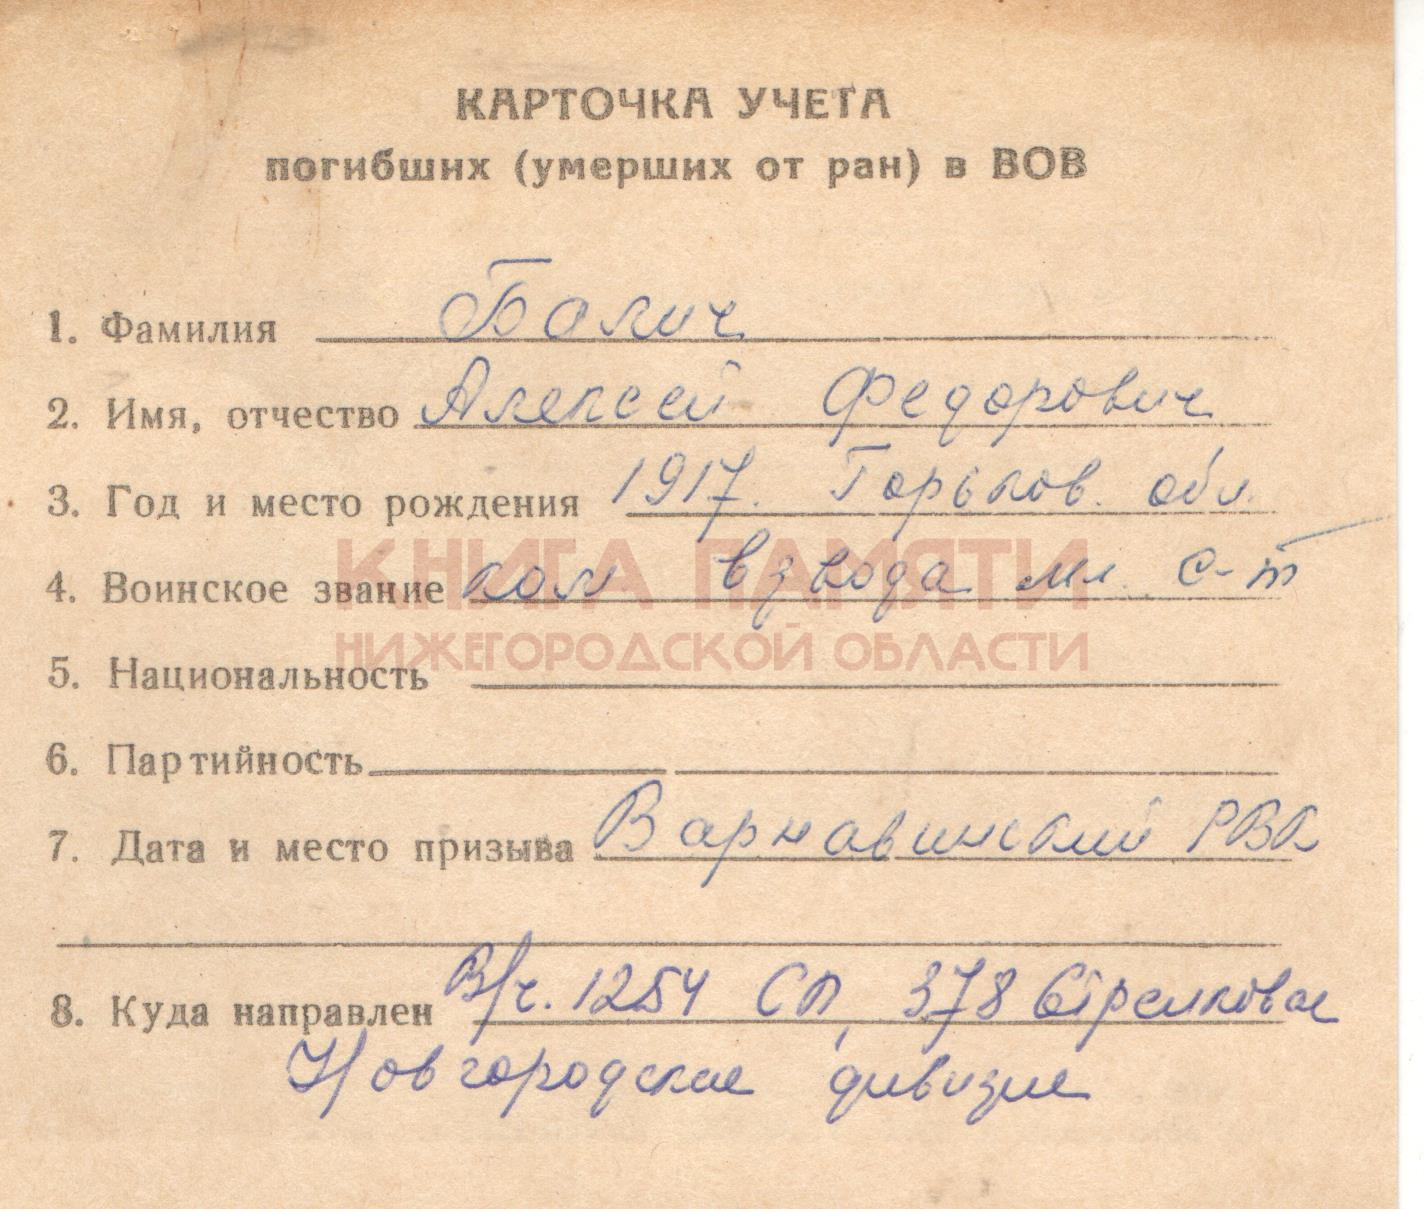 КАРТОЧКА УЧЕТА
погибших (умерших от ран) в ВОВ
1. Фамилия Балич
2. Имя, отчество Алексей Федорович
3. Год и место рождения 1917. Горьков. обл.
4. Воинское звание ком взвода мл. с-т
КНИГА ПАМЯТИ
НИЖЕГОРОДСКОЙ ОБЛАСТИ
5. Национальность
6. Партийность
7. Дата и место призыва Варнавинский РВК
8. Куда направлен В/ч. 1254 СП, 378 Стрелковая
Новгородская дивизия